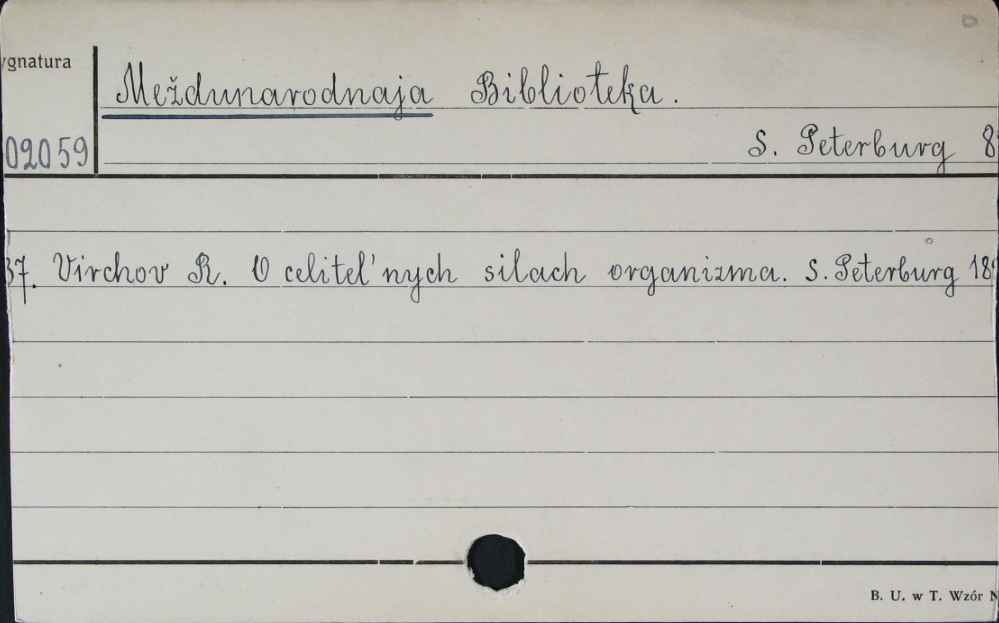 ygnatura
Meždunarodnaja Biblioteka.
02059
S. Peterburg 8
37. Virchov R. O celitel'nych silach organizma. S. Peterburg 18
B. U. w T. Wzór N